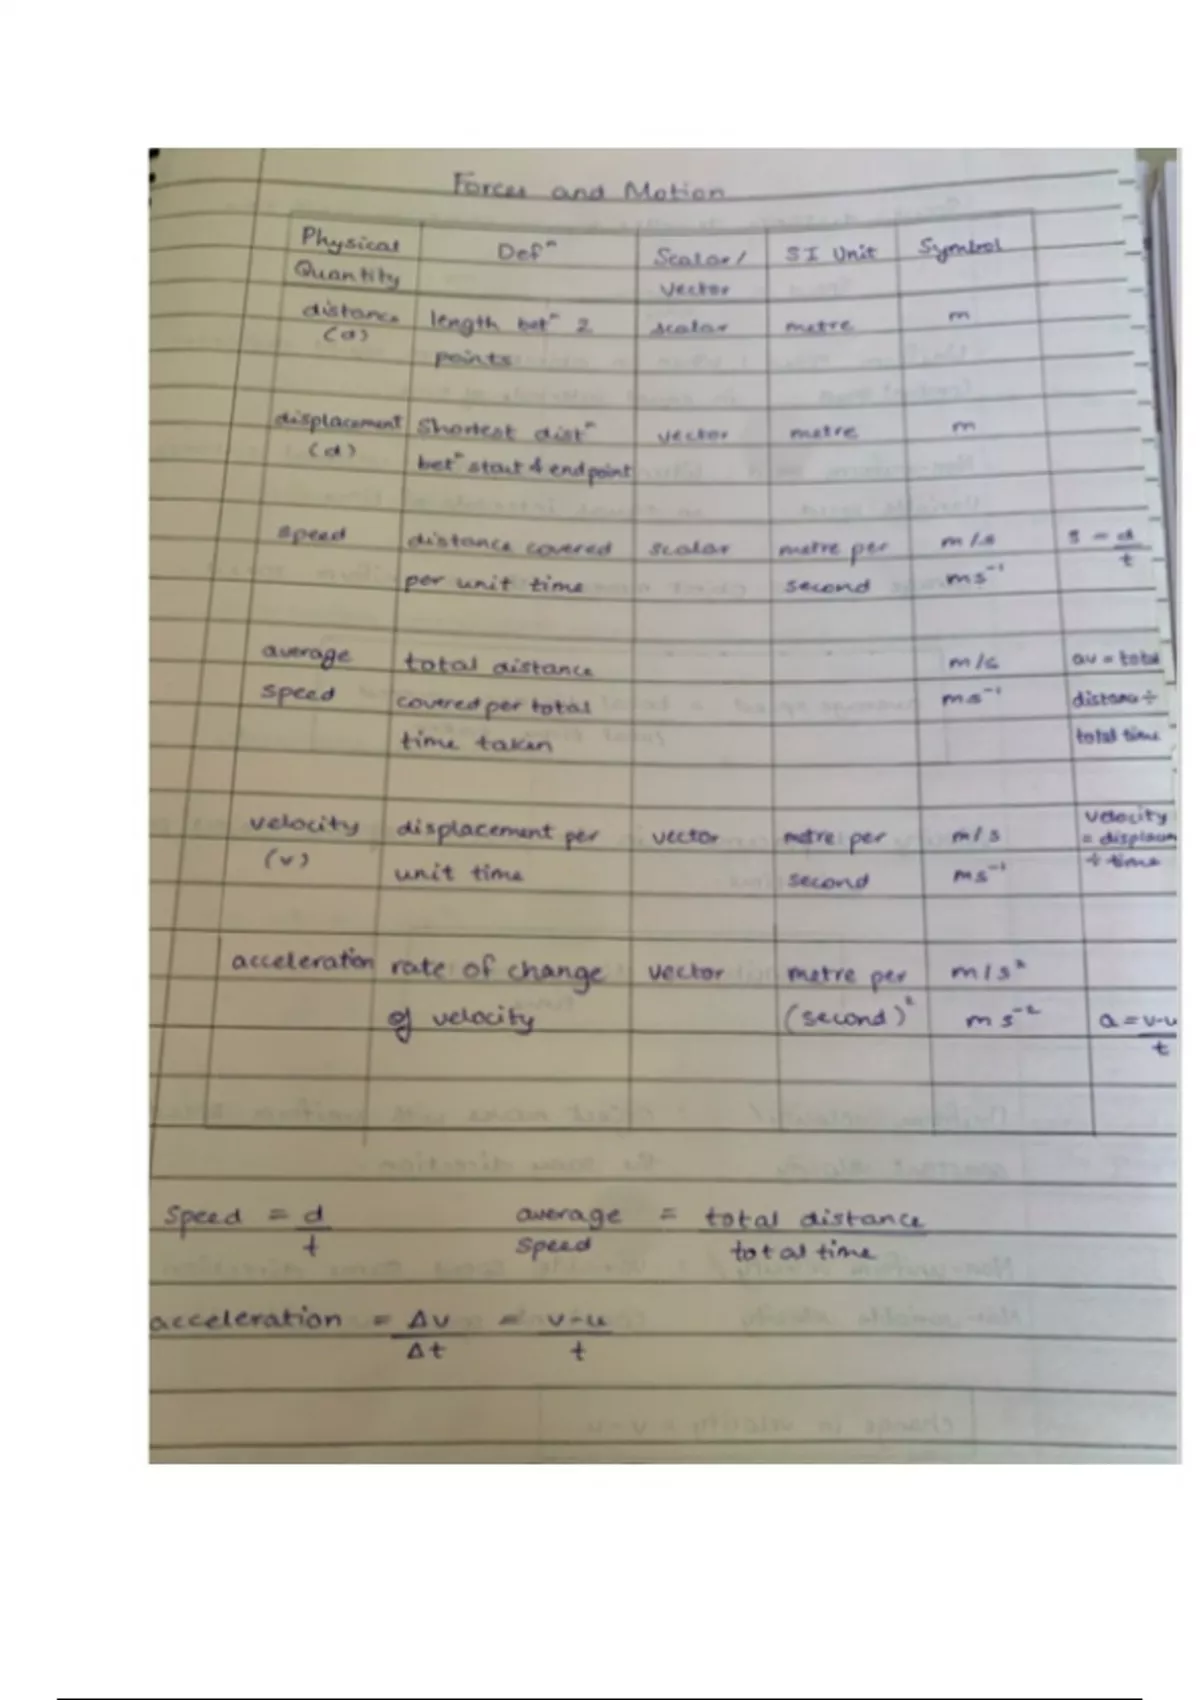 Forces and Motion
Physical Quantity Defⁿ Scalar/ vector SI Unit Symbol
distance (d) length betⁿ 2 points scalar metre m
displacement (d) Shortest distⁿ betⁿ start & endpoint vector metre m
speed distance covered per unit time scalar metre per second m/s ms⁻¹ s = d/t
average speed total distance covered per total time taken m/s ms⁻¹ av = total distanc ÷ total time
velocity (v) displacement per unit time vector metre per second m/s ms⁻¹ velocity = displacem ÷ time
acceleration rate of change of velocity vector metre per (second)² m/s² ms⁻² a = v-u/t
Speed = d/t average speed = total distance/total time
acceleration = Δv/Δt = v-u/t